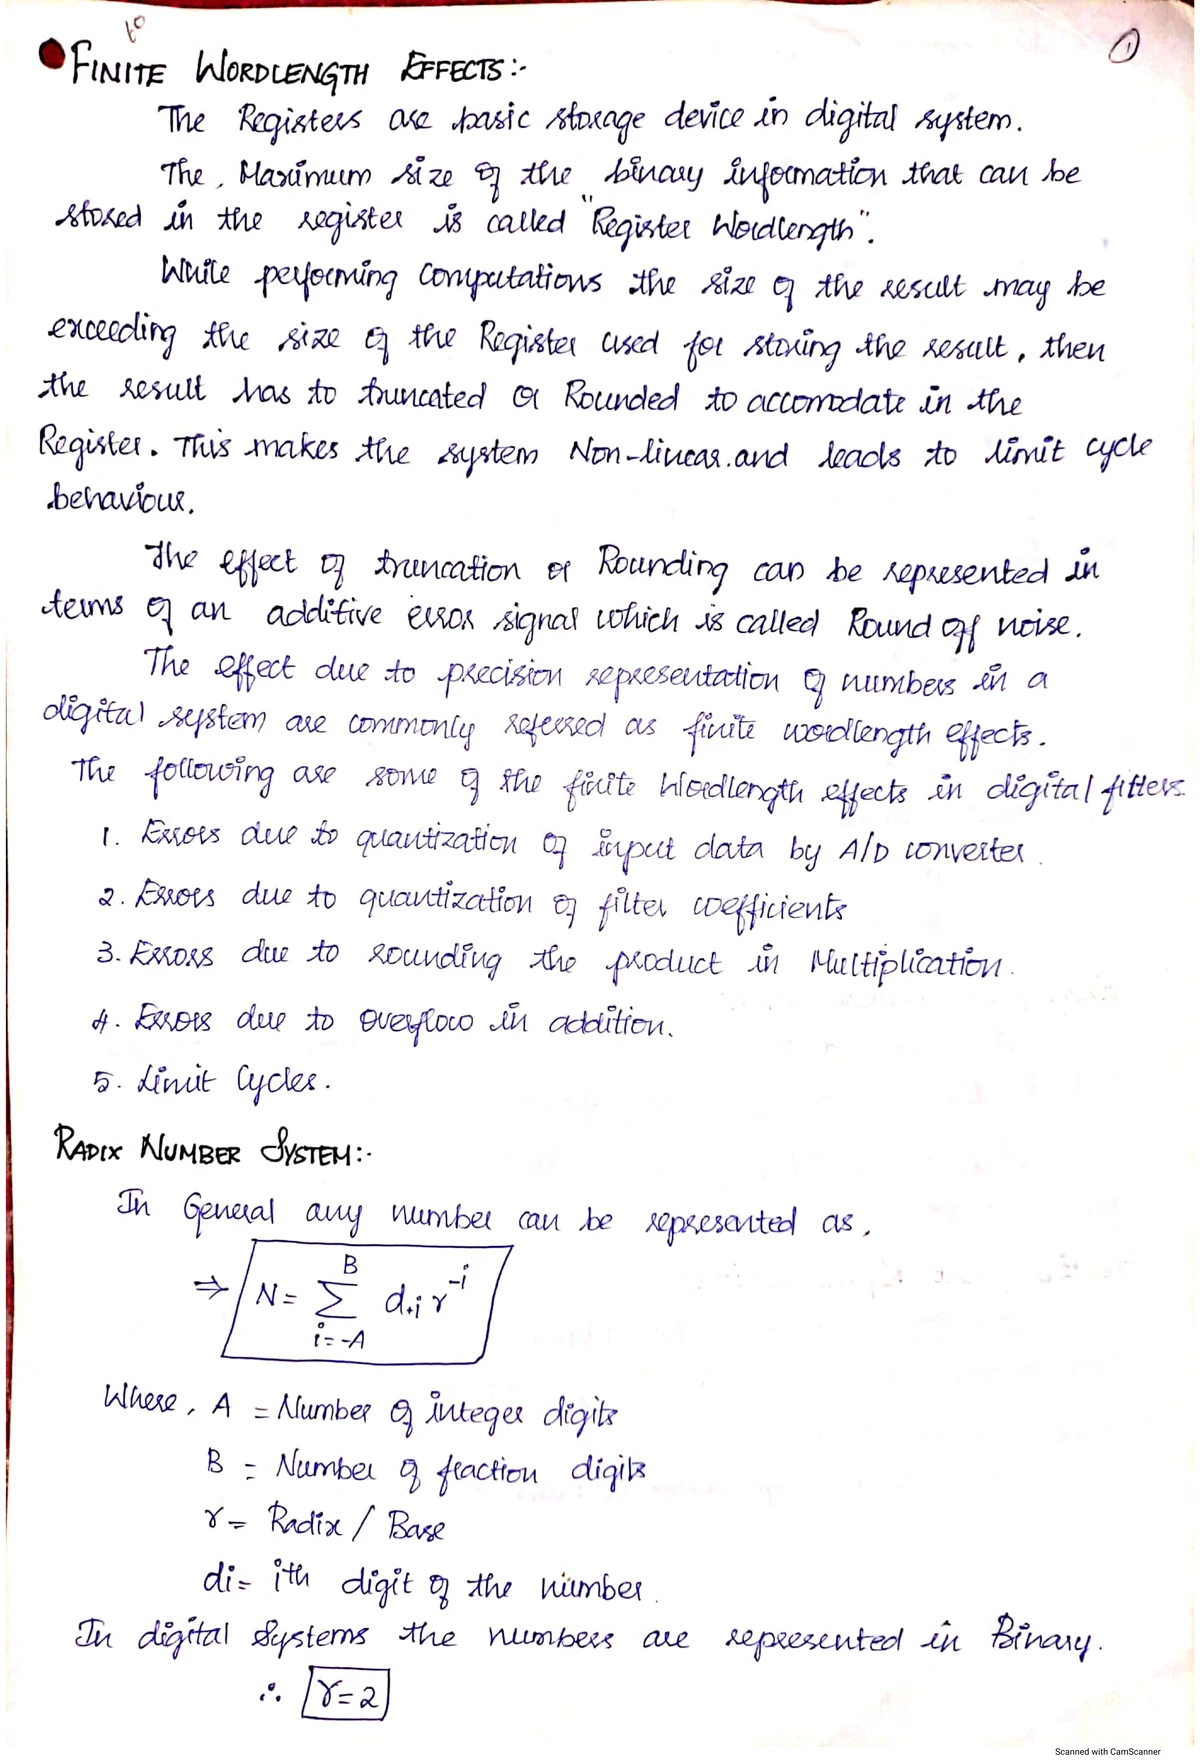 to
①
FINITE WORDLENGTH EFFECTS:-
The Registers are basic storage device in digital system.
The, Maximum size of the binary information that can be
stored in the register is called "Register Wordlength".
While performing computations the size of the result may be
exceeding the size of the Register used for storing the result, then
the result has to truncated or Rounded to accomodate in the
Register. This makes the system Non-linear.and leads to limit cycle
behaviour.
The effect of truncation or Rounding can be represented in
terms of an additive error signal which is called Round off noise.
The effect due to precision representation of numbers in a
digital system are commonly referred as finite wordlength effects.
The following are some of the finite Wordlength effects in digital filters.
1. Errors due to quantization of input data by A/D converter.
2. Errors due to quantization of filter coefficients
3. Errors due to rounding the product in Multiplication.
4. Errors due to overflow in addition.
5. Limit Cycles.
RADIX NUMBER SYSTEM:-
In General any number can be represented as,
⇒ N = ∑_{i=-A}^{B} d_{+i} r^{-i}
Where, A = Number of integer digits
B = Number of fraction digits
r = Radix / Base
di = ith digit of the number.
In digital Systems the numbers are represented in Binary.
∴ r=2
Scanned with CamScanner